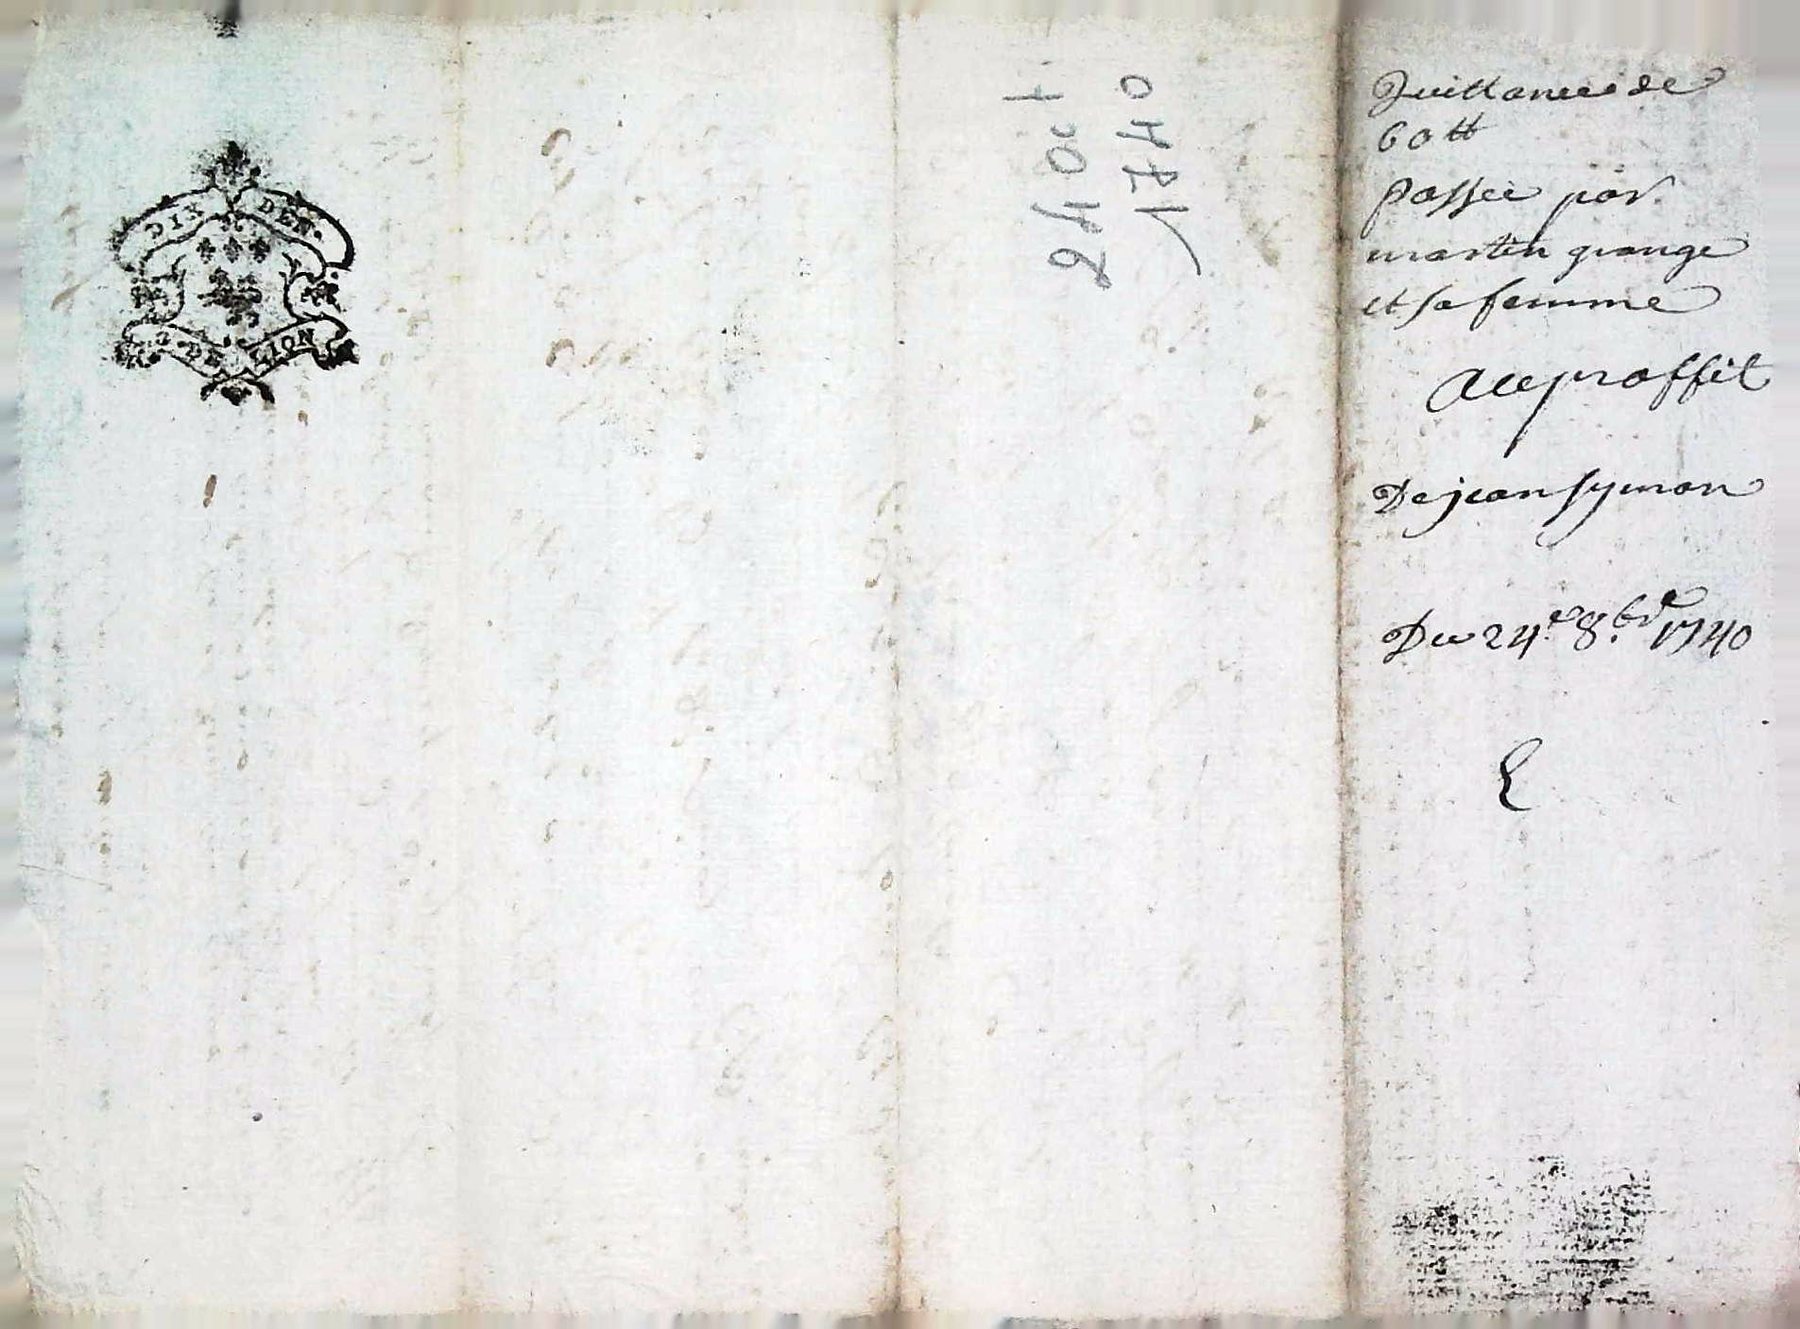 DIX DEN.
G. DE LION
24 Oct
1740
Quittance de
60 tt
passée par
martin grange
et sa femme
Au proffit
De jean symon
Du 24.e 8.bre 1740